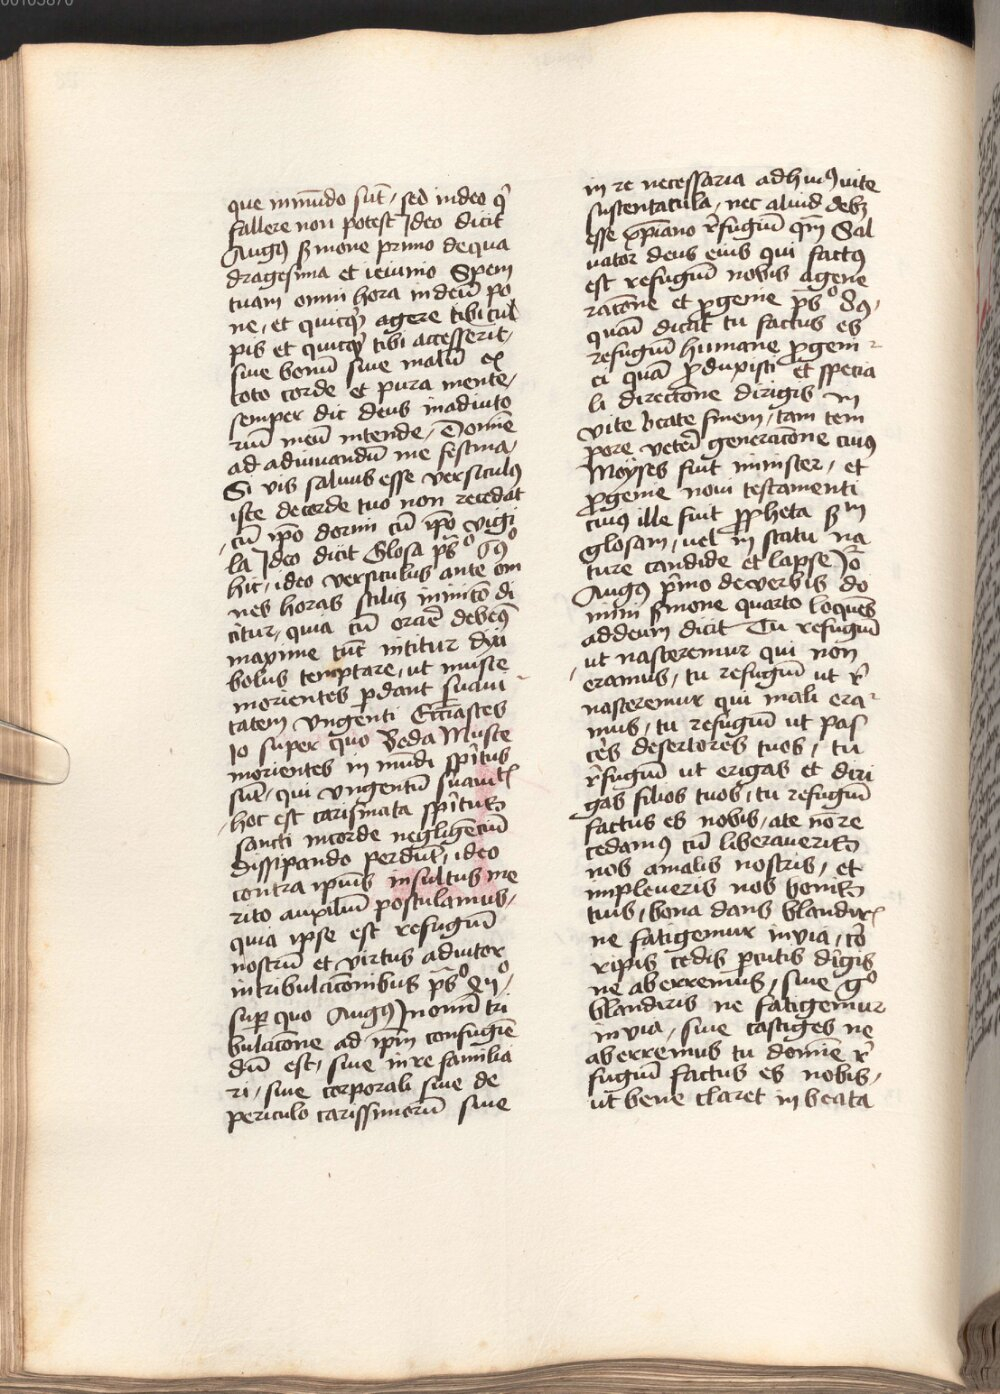 00103870
que in mūdo sūt / sed in deo qͥ
fallere non potest Ideo dicit
Augꝯ sꝛmone primo de qua
dragesima et ieiunio Spem
tuam omni hora in deū po
ne / et quicqͥd agere tibi cul
pis et quicqͥd tibi accesserit /
siue bonū siue malū ex
toto corde et pura mente /
semper dic deus in adiuto
riū meū intende / Domīe
ad adiuuandū me festina /
Si vis saluus esse versiculꝯ
iste de corde tuo non recedat
/ cū ip̄o dormi cū ip̄o vigi
la Ideo dicit Glosa p̄s°
hic / ideo versiculus ante om
nes horas
citur / quia cū orare debemꝯ
maxime tūc
bolus temptare / ut musce
morientes ꝑdant suaui
tatem vngenti Ecc̄iastes
io super quo Beda Musce
morientes in mūdi sp̄itus
sūt / qui vngentū suauit
/ hoc est carismata sp̄itus
sancti in corde negligēciū
dissipando perdūt / ideo
contra ip̄ius insultus me
rito auxiliū postulamus /
quia ipse est refugiū
nostrū et virtus adiutor
in tribulac̄onibus p̄s°
suꝑ quo Augꝯ In omī tri
bulac̄one ad ip̄m confugiē
dū est / siue in re familia
ri / siue corporali siue de
periculo carissimorū siue
in re necessaria ad huiꝯ vite
sustentacula / nec aliud debꝫ
esse xp̄iano r̄fugiū qm̄ Sal
uator deus eius qui factꝯ
est refugiū nobis a gene
rac̄one et ꝓgenie p̄s°
quasi dicat tu factus es
refugiū humane ꝓgeni
ei quā ꝓduxisti et specia
li direcc̄one dirigis in
vite beate finem / tam tem
pore veteri generac̄one cuiꝯ
Moyses fuit minister / et
ꝓgenie noui testamenti
cuiꝯ ille fuit ꝓpheta sm
glosam / uel in statu na
ture candide et lapse Iō
Augꝯ pͥmo de verbis do
mini sꝛmone quarto loquēs
ad deum dicit Tu refugiū
/ ut nasceremur qui non
/ eramus / tu refugiū ut r̄
nasceremur qui mali era
mus / tu refugiū ut pas
ces desertores tuos / tu
r̄fugiū ut erigas et diri
gas filios tuos / tu refugiū
factus es nobis / a te nō re
cedamꝯ cū liberaueris
nos a malis nostris / et
impleueris nos bonis
tuis / bona dans blandiris
ne fatigemur in via / cō
ripis cedis ꝑcutis dirigis
ne aberremus / siue gͦ
blandiris ne fatigemur
in via / siue castiges ne
aberremus tu domīe r̄
fugiū factus es nobis /
ut bene claret in beata